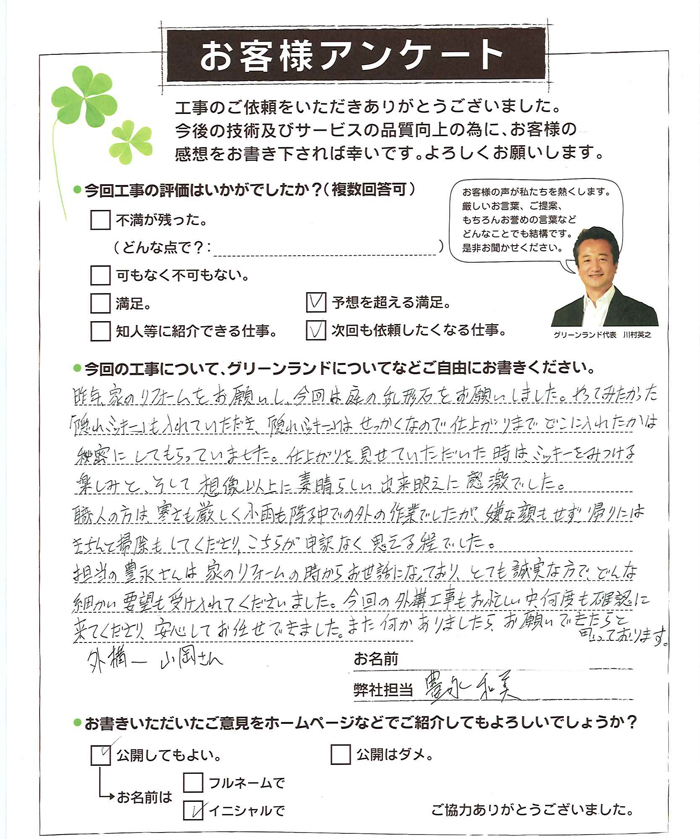 お客様アンケート
工事のご依頼をいただきありがとうございました。
今後の技術及びサービスの品質向上の為に、お客様の
感想をお書き下されば幸いです。よろしくお願いします。
●今回工事の評価はいかがでしたか?(複数回答可)
□不満が残った。
(どんな点で?: )
□可もなく不可もない。
□満足。
☑予想を超える満足。
□知人等に紹介できる仕事。
☑次回も依頼したくなる仕事。
お客様の声が私たちを熱くします。
厳しいお言葉、ご提案、
もちろんお誉めの言葉など
どんなことでも結構です。
是非お聞かせください。
グリーンランド代表 川村英之
●今回の工事について、グリーンランドについてなどご自由にお書きください。
昨年、家のリフォームをお願いし、今回は庭の乱形石をお願いしました。やってみたかった
「隠れミッキー」も入れていただき、「隠れミッキー」はせっかくなので仕上がりまでどこに入れたかは
秘密にしてもらっていました。仕上がりを見せていただいた時は、ミッキーをみつける
楽しみと、そして想像以上に素晴らしい出来映えに感激でした。
職人の方は、寒さも厳しく小雨も降る中での外の作業でしたが、嫌な顔もせず帰りには
きちんと掃除もしてくださり、こちらが申訳なく思える程でした。
担当の豊永さんは家のリフォームの時からお世話になっており、とても誠実な方で、どんな
細かい要望も受け入れてくださいました。今回の外構工事もお忙しい中、何度も確認に
来てくださり、安心してお任せできました。また何かありましたら、お願いできたらと
思っております。
外構ー 山岡さん
お名前
弊社担当 豊永 和美
●お書きいただいたご意見をホームページなどでご紹介してもよろしいでしょうか?
☑公開してもよい。
□公開はダメ。
お名前は
□フルネームで
☑イニシャルで
ご協力ありがとうございました。